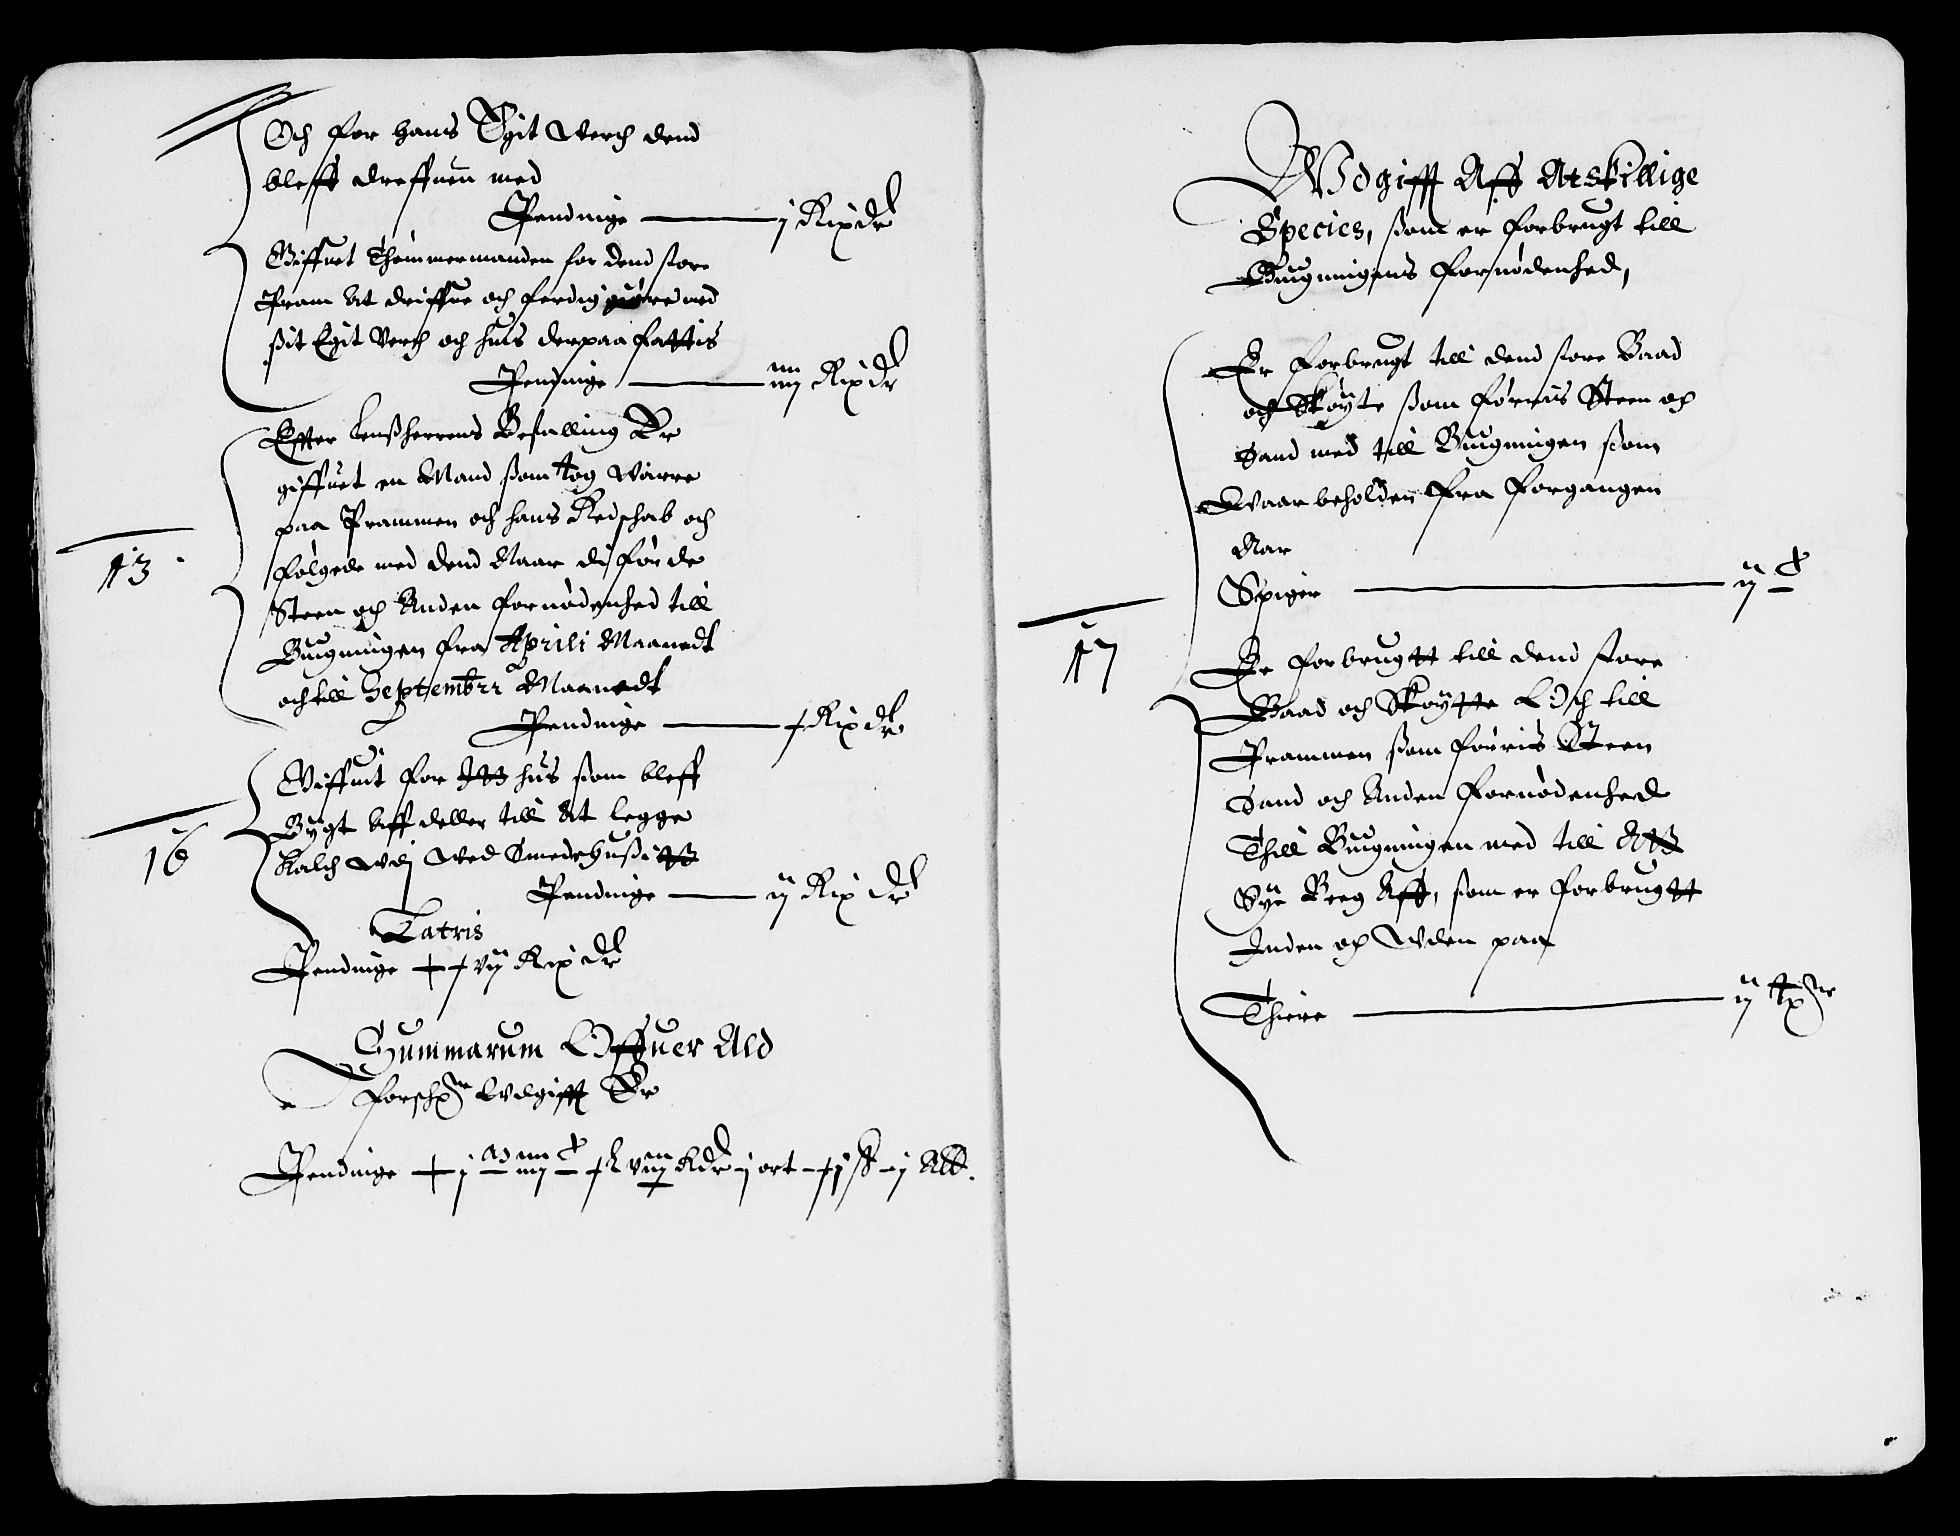 Och for hans Egit Verch dend
bleff dreffuen med
Pendinge — j Rixdlr
Giffuet Thømmermanden for dend store
Pram at driffue och ferdig giøre med
sit Egit Verch och huis derpaa fattis
Pendinge — iiij Rixdlr
Effter Lenßherrens Befalling Er
giffuet en Mand som tog Vaarre
paa Prammen och hans Redschab och
følgede med dend Naar di førde
Steen och Anden fornødenhed till
Bugningen fra Aprili Maanedt
och till Septembri Maanedt
Pendinge — x Rixdlr
13
Giffuit for Itt hus som bleff
Bygt Aff deller till At legge
Kalch Vdj Ved Smedehusitt
Pendinge — ij Rix dlr
16
Latris
Pendinge xxvij Rix dlr
Summarum Offuer Ald
forschr Vdgifft Er
Pendinge j ort xj ß ij Alb.
Wdgifft Aff Atskillige
Species, som er forbrugt till
Bugningens fornødenhed,
Er forbrugt till dend store Baad
och Skøyte som føris Steen och
Sand med till Bugningen som
Vaar beholden fra forgangen
Aar
Spiger — ij c
17
Er forbrugtt till dend store
Baad och Skøytte Och till
Prammen som føris Steen
Sand och Anden fornødenhed
Thill Bugningen med till Att
Sye Beeg Aff, som er forbrugtt
Inden och Vden paa
Thiere — ij tr